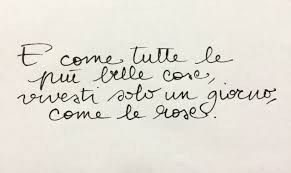 E come tutte le
più belle cose,
vivesti solo un giorno,
come le rose.